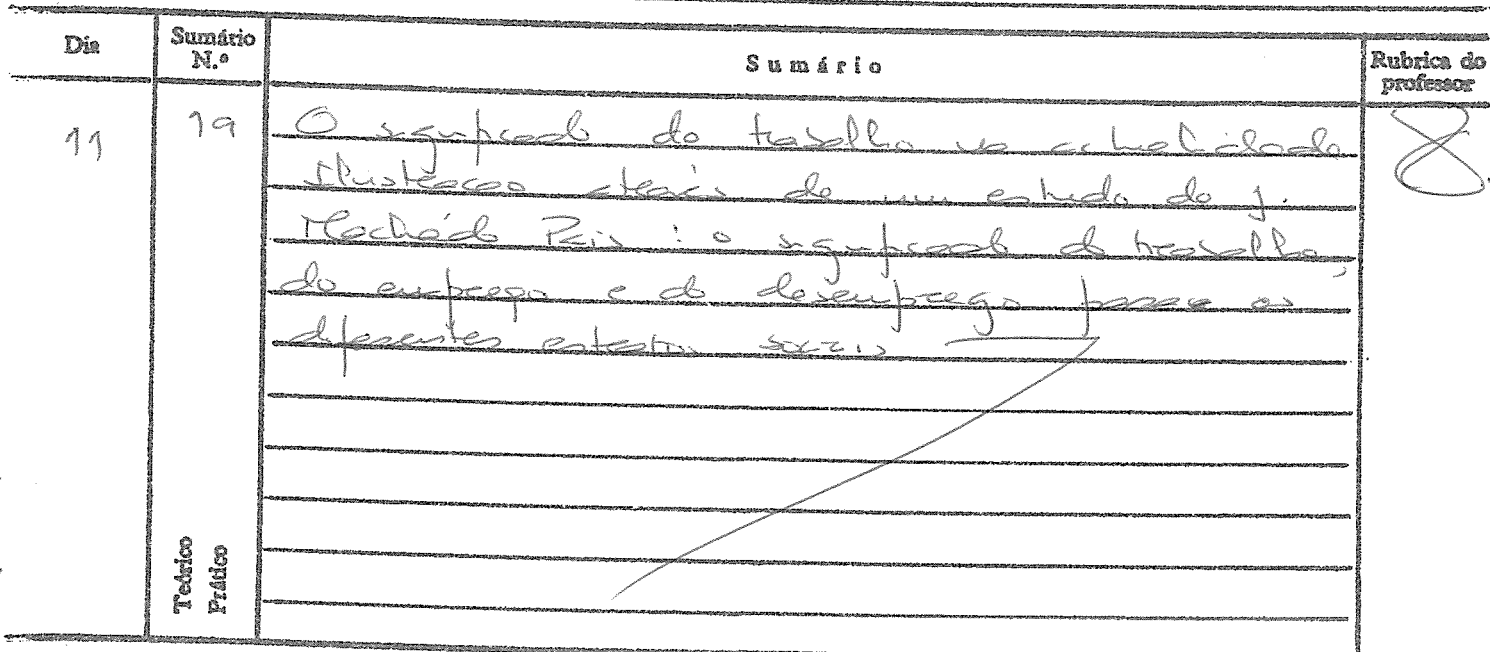 Dia Sumário N.º Sumário Rubrica do professor
11 19 O significado do trabalho na actualidade
Ilustração através de um estudo do J.
Machado Pais : o significado do trabalho,
do emprego e do desemprego para os
diferentes estratos sociais
Teórico
Prático